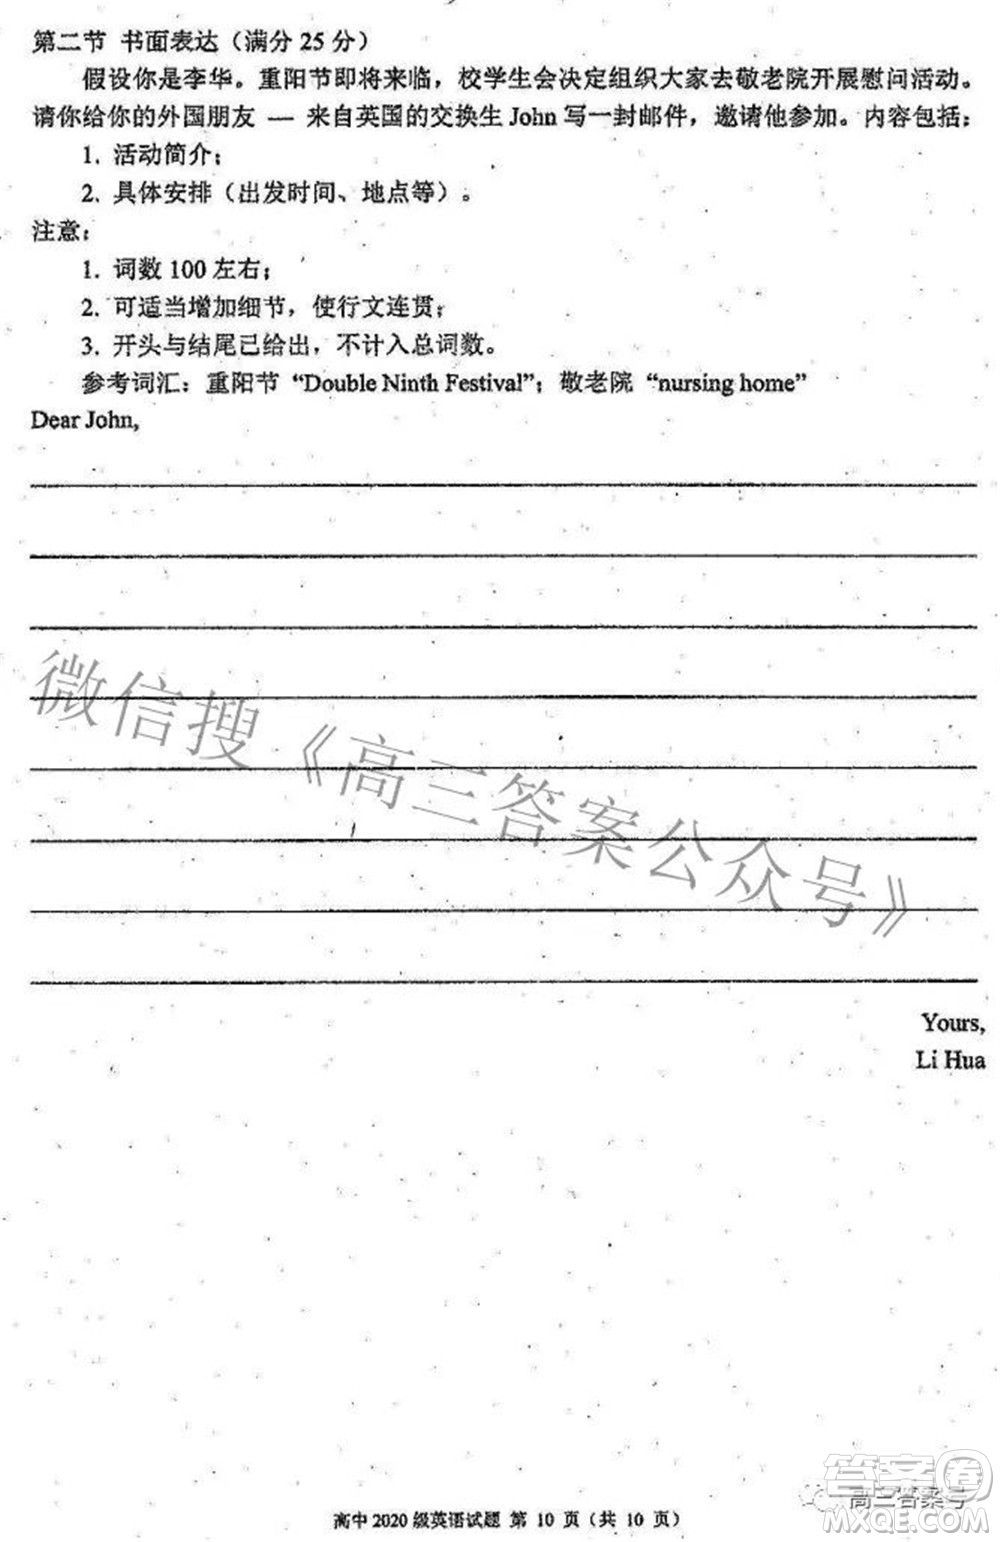 第二节 书面表达（满分 25 分）
假设你是李华。重阳节即将来临，校学生会决定组织大家去敬老院开展慰问活动。
请你给你的外国朋友 — 来自英国的交换生 John 写一封邮件，邀请他参加。内容包括：
1. 活动简介；
2. 具体安排（出发时间、地点等）。
注意：
1. 词数 100 左右；
2. 可适当增加细节，使行文连贯；
3. 开头与结尾已给出，不计入总词数。
参考词汇：重阳节 “Double Ninth Festival”；敬老院 “nursing home”
Dear John,
微信搜《高三答案公众号》
Yours,
Li Hua
答案卷
高三答案号
高中 2020 级英语试题 第 10 页（共 10 页）